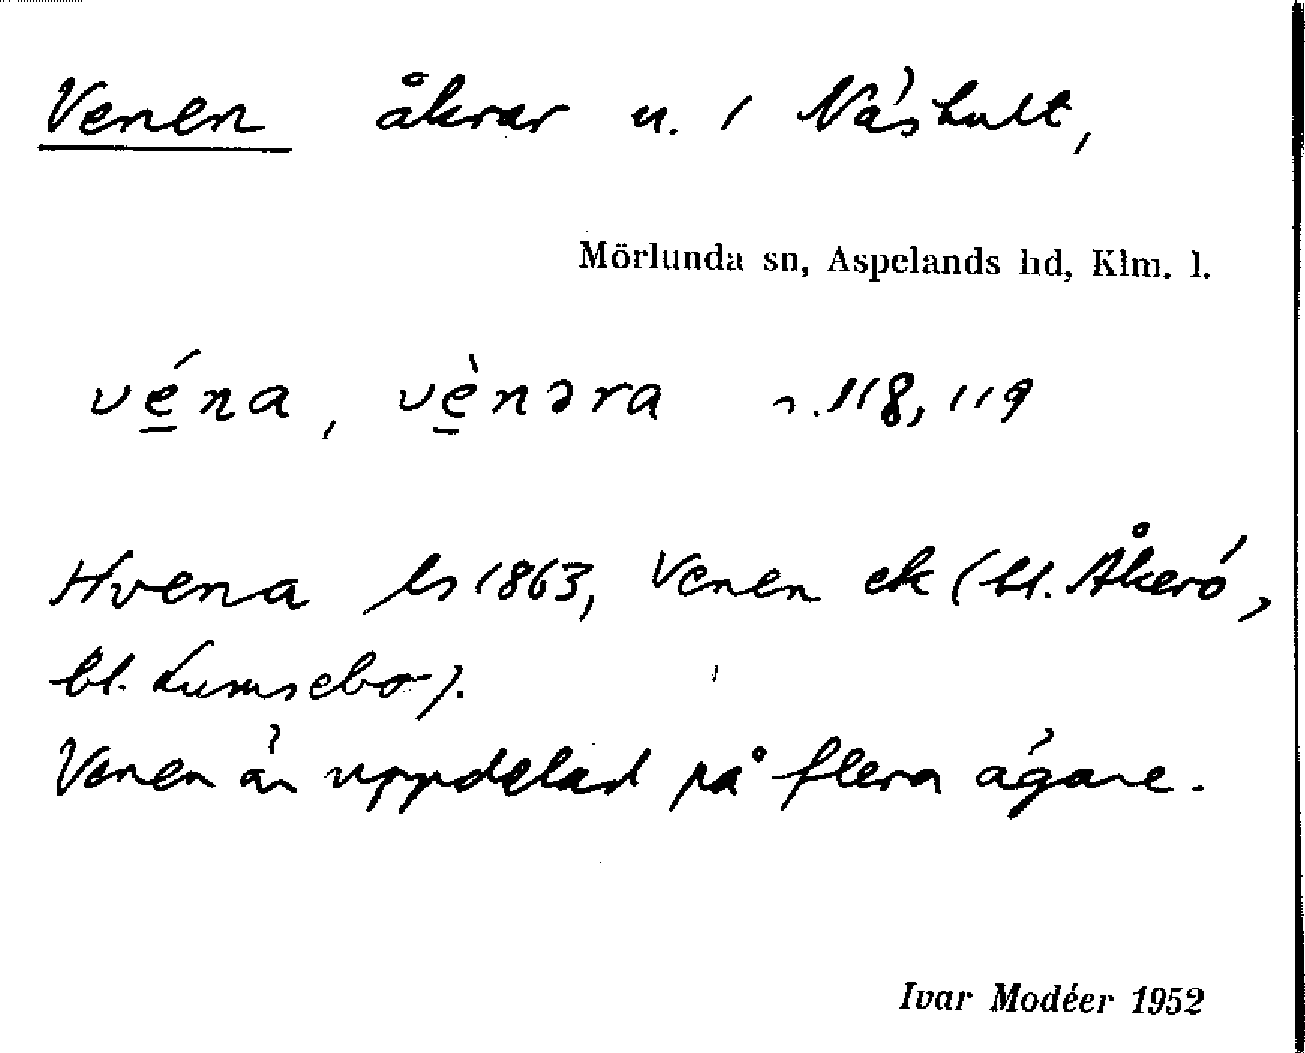 Venen åkrar u. 1 Näshult,
Mörlunda sn, Aspelands hd, Klm. l.
vé̱na, vè̱nəra n. 118, 119
Hvena ls 1863, Venen ek (bl. Åkerö,
bl. Lumsebo).
Venen är uppdelad på flera ägare.
Ivar Modéer 1952